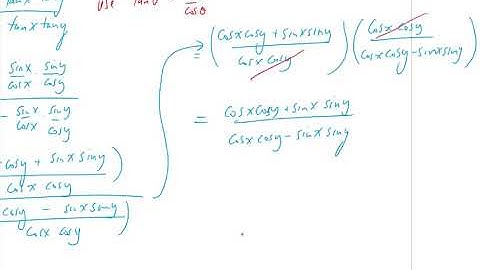 tanx tany
use tanθ = 
cosθ
sinx/cosx · siny/cosy
- sinx/cosx · siny/cosy
cosy + sinx siny)
cosx cosy
cosy - sinx siny)
cosx cosy
= (cosxcosy + sinxsiny / cosx cosy) (cosx cosy / cosxcosy - sinxsiny)
= cosxcosy + sinx siny / cosx cosy - sinx siny